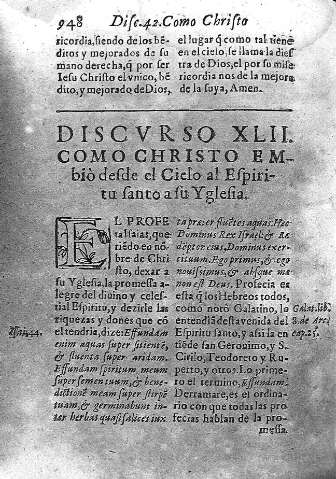 948 Disc. 42. Como Christo
ricordia, siendo de los bẽ-
ditos y mejorados de su
mano derecha, q̃ por ser
Iesu Christo el vnico, bẽ-
dito, y mejorado de Dios,
el lugar q̃ como tal tiene
en el cielo, se llama la dies
tra de Dios, el por su mise
ricordia nos de la mejora
de la suya, Amen.
DISCVRSO XLII.
COMO CHRISTO EM-
biò desde el Cielo al Espiri-
tu santo a su Yglesia.
EL PROFE
ta Isaias, que
riẽdo en nõ
bre de Chri-
sto, dexar a
su Yglesia, la promessa a-
legre del diuino y celes-
tial Espiritu, y dezirle las
riquezas y dones que cõ
el tendria, dize: Effundam
enim aquas super sitientẽ,
& fluenta super aridam.
Effundam spiritum meum
super semen tuum, & bene-
dictionẽ meam super stirpẽ
tuam, & germinabunt in-
ter herbas quasi salices iux
Isai. 44.
ta præter fluẽtes aquas. Hæc
Dominus Rex Israel, & Re
dẽptor eius, Dominus exer-
cituum. Ego primus, & ego
nouissimus, & absque me
non est Deus. Profecia es
esta q̃ los Hebreos todos,
como notò Galatino, lo
entendiã de la venida del
Espiritu santo, y assi la en
tiẽde san Geronymo, y S.
Cirilo, Teodoreto y Ru-
perto, y otros. Lo prime-
ro el termino, Effundam.
Derramare, es el ordina-
rio con que todas las pro
fecias hablan de la pro-
messa.
Galat. lib.
cap. 25.